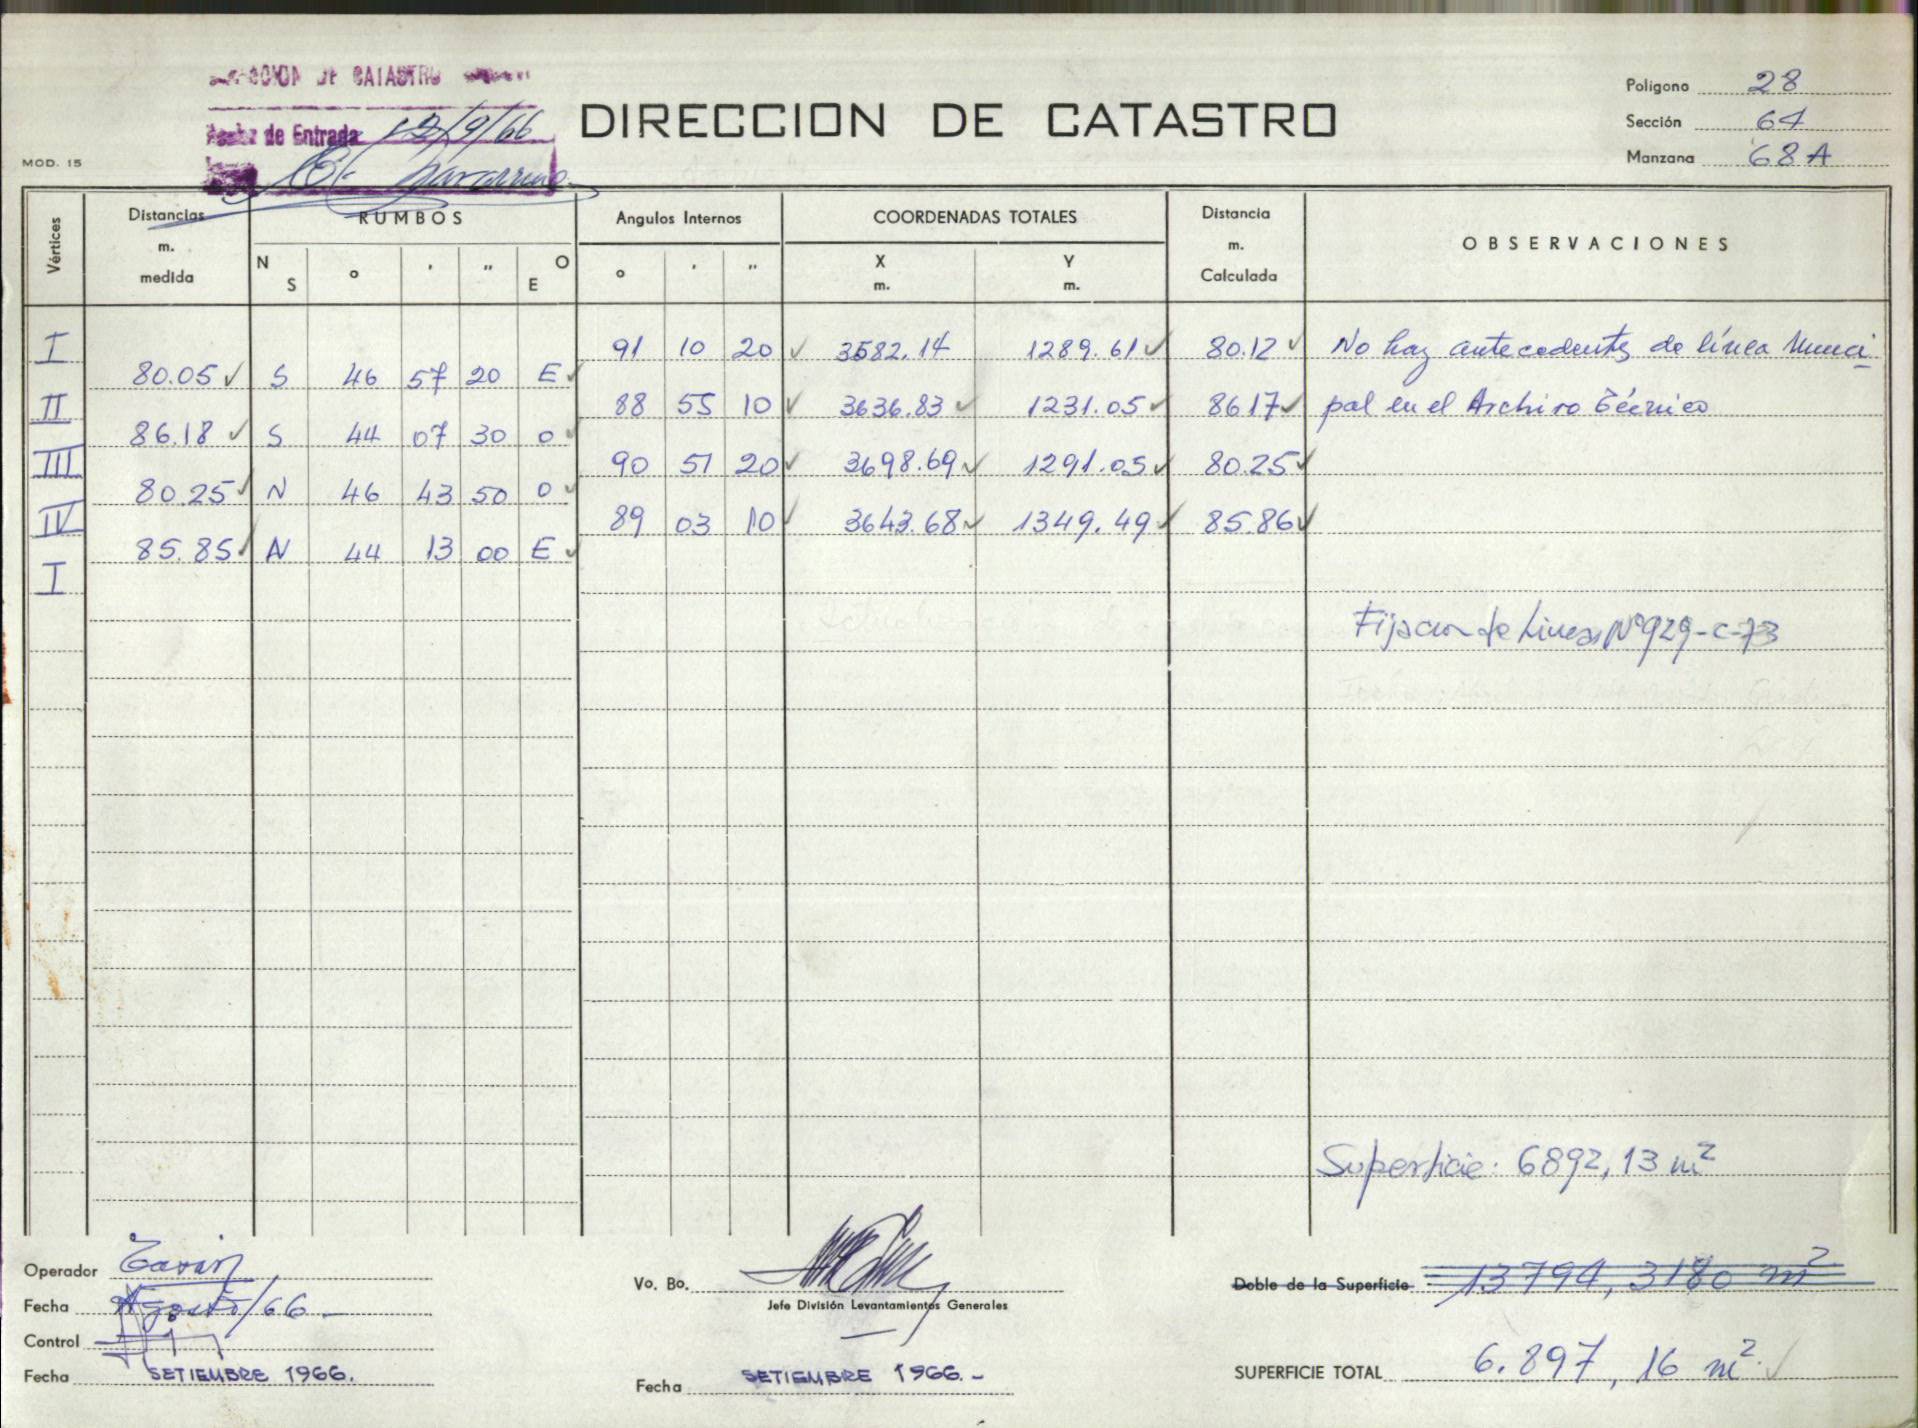 DE CATASTRO
Fecha de Entrada 12/9/66
DIRECCION DE CATASTRO
MOD. 15
Polígono 28
Sección 64
Manzana 68A
Vértices
Distancias m. medida
RUMBOS
N S ° ' " O E
Angulos Internos
° ' "
COORDENADAS TOTALES
X m. Y m.
Distancia m. Calculada
OBSERVACIONES
I 91 10 20 3582.14 1289.61 80.12 No hay antecedentes de línea Munici
80.05 S 46 57 20 E
II 88 55 10 3636.83 1231.05 86.17 pal en el Archivo Técnico
86.18 S 44 07 30 O
III 90 51 20 3698.69 1291.05 80.25
80.25 N 46 43 50 O
IV 89 03 10 3643.68 1349.49 85.86
85.85 N 44 13 00 E
I
Fijacion de Lineas Nº929-C-73
Superficie: 6892,13 m²
Operador
Fecha Agosto/66
Control
Fecha SETIEMBRE 1966.
Vo. Bo.
Jefe División Levantamientos Generales
Fecha SETIEMBRE 1966.-
Doble de la Superficie 13794,3180 m²
SUPERFICIE TOTAL 6.897,16 m²